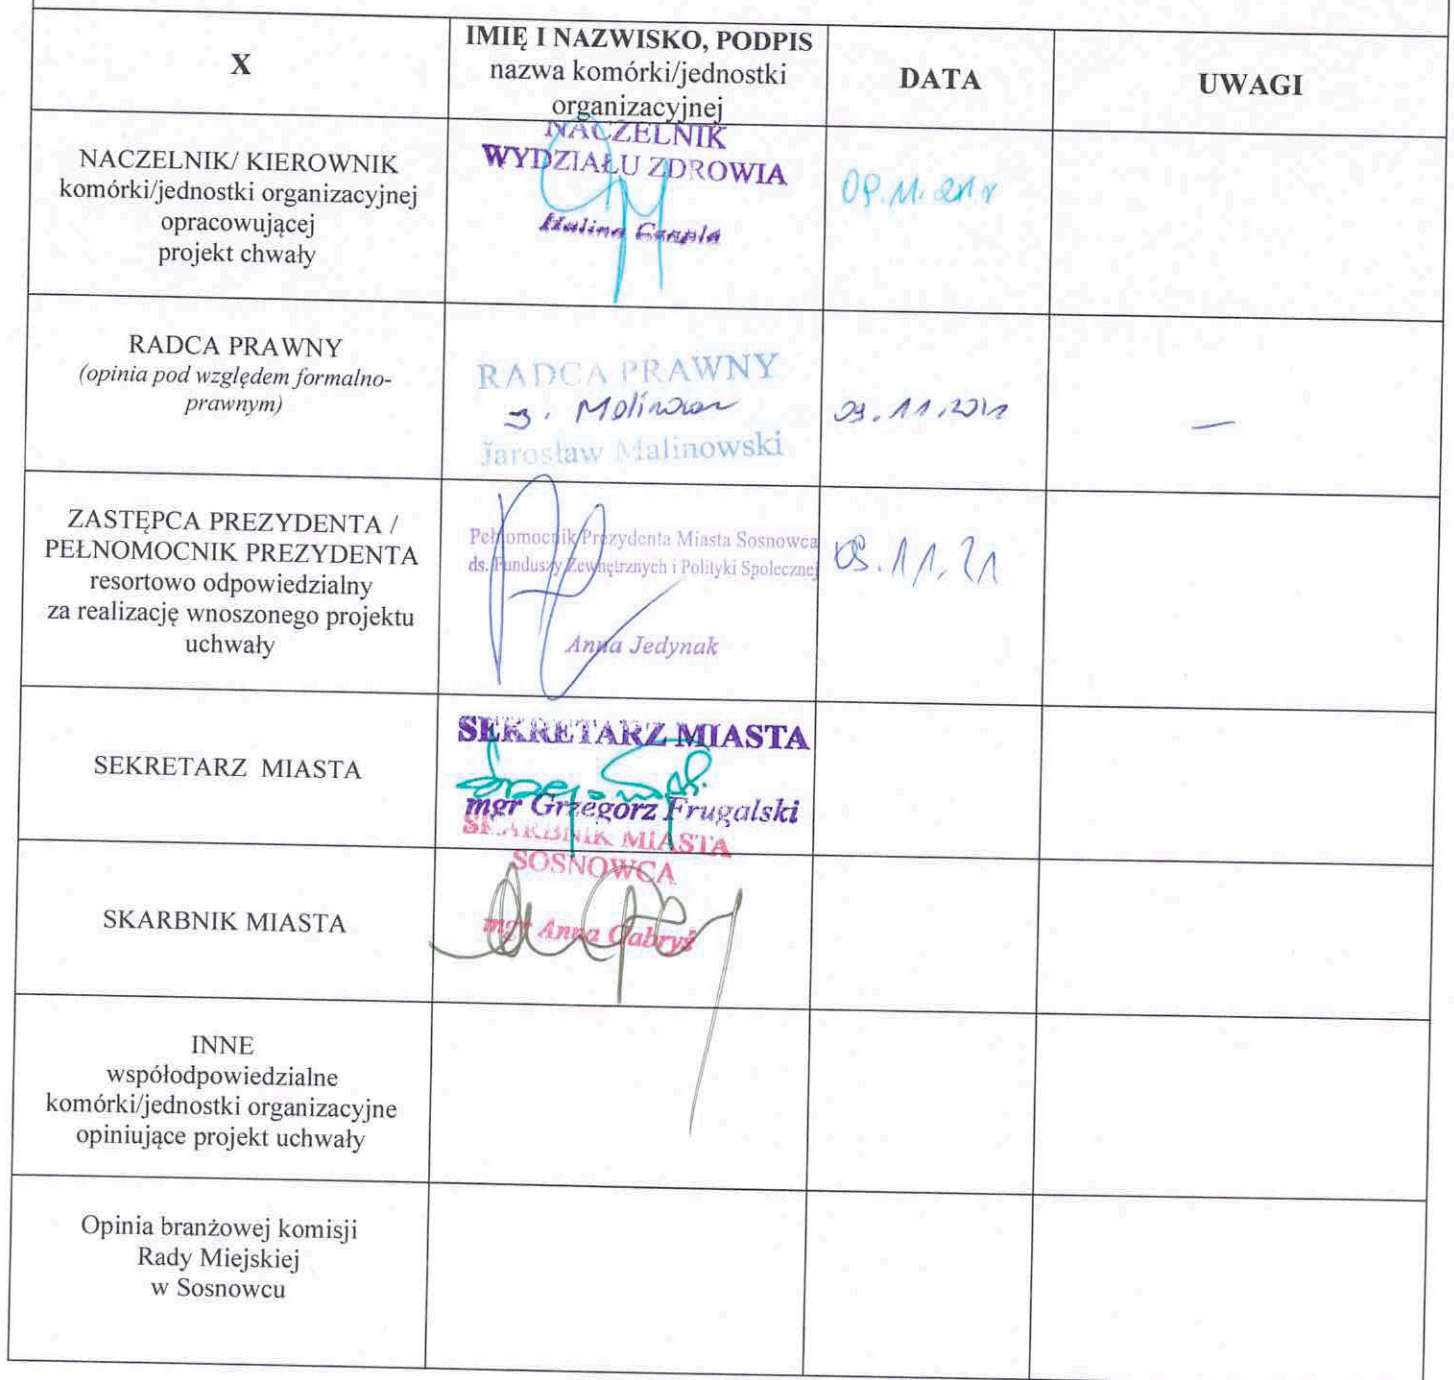 X
IMIĘ I NAZWISKO, PODPIS
nazwa komórki/jednostki
organizacyjnej
DATA
UWAGI
NACZELNIK/ KIEROWNIK
komórki/jednostki organizacyjnej
opracowującej
projekt chwały
NACZELNIK
WYDZIAŁU ZDROWIA
Halina Czapla
RADCA PRAWNY
(opinia pod względem formalno-
prawnym)
RADCA PRAWNY
Jarosław Malinowski
09.11.2021
—
ZASTĘPCA PREZYDENTA /
PEŁNOMOCNIK PREZYDENTA
resortowo odpowiedzialny
za realizację wnoszonego projektu
uchwały
Pełnomocnik Prezydenta Miasta Sosnowca
ds. Funduszy Zewnętrznych i Polityki Społecznej
Anna Jedynak
09.11.21
SEKRETARZ MIASTA
SEKRETARZ MIASTA
mgr Grzegorz Frugalski
SKARBNIK MIASTA
SKARBNIK MIASTA
SOSNOWCA
mgr Anna Gabryś
INNE
współodpowiedzialne
komórki/jednostki organizacyjne
opiniujące projekt uchwały
Opinia branżowej komisji
Rady Miejskiej
w Sosnowcu